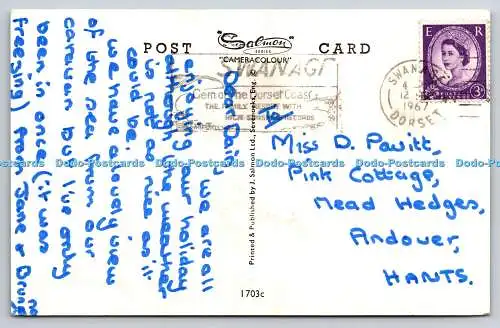 POST CARD
"Salmon"
SERIES
"CAMERACOLOUR"
SWANAGE
Gem of the Dorset Coast
THE FAMILY RESORT WITH
HIGH SUNSHINE RECORDS
E R
SWANAGE
1967
DORSET
Dear Daisy, we are all
enjoying our holiday
although the weather
is not as nice as it
could be.
we have a lovely view
of the sea from our
caravan but I've only
been in once (it was
freezing) from Jane & Bruno
Printed & Published by J. Salmon Ltd., Sevenoaks, Eng.
1703c
Miss D. Pavitt,
Pink Cottage,
Mead Hedges,
Andover,
HANTS.
Dodo-Postcards Dodo-Postcards Dodo-Postcards